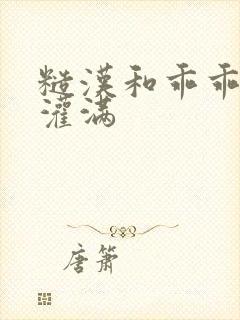 糙漢和乖乖
灌满
唐箫